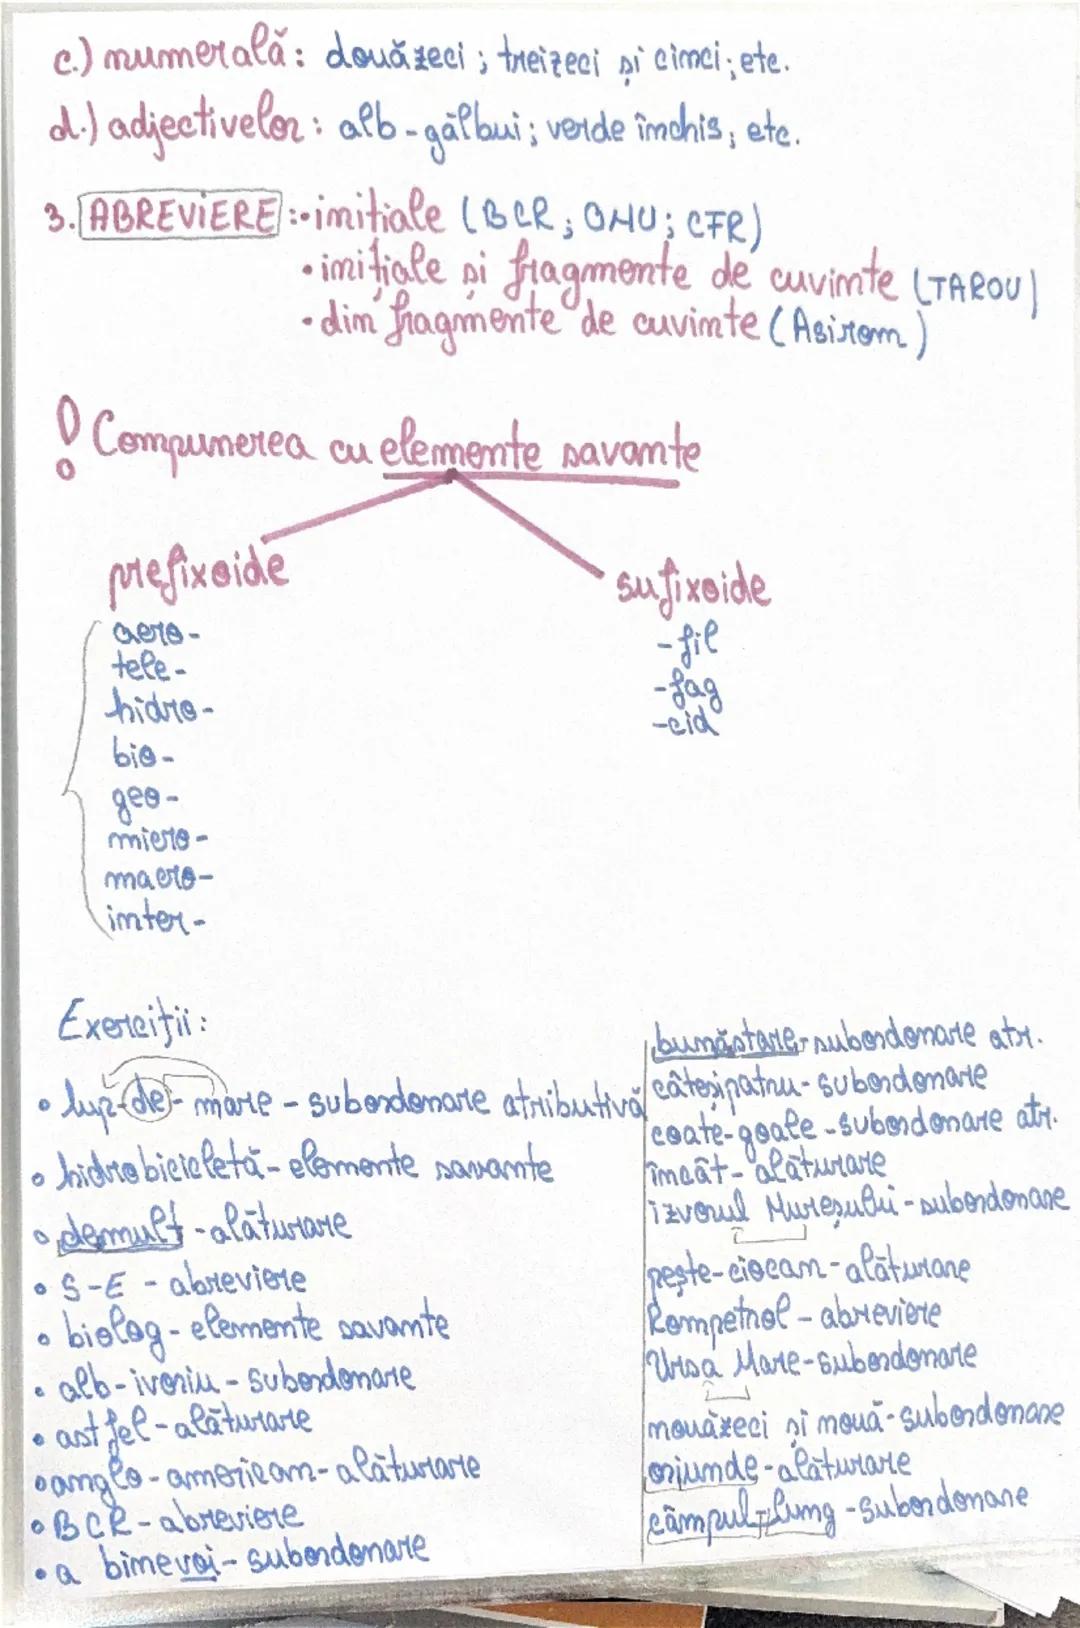 c.) numerală: douăzeci; treizeci și cinci; etc.
d.) adjectivelor: alb-gălbui; verde închis; etc.
3. ABREVIERE: •inițiale (BCR; ONU; CFR)
•inițiale și fragmente de cuvinte (TAROM)
•din fragmente de cuvinte (Asirom)
! Compunerea cu elemente savante
prefixoide
aero-
tele-
hidro-
bio-
geo-
micro-
macro-
inter-
sufixoide
-fil
-fag
-cid
Exerciții:
• lup-de-mare - subordonare atributivă
• hidrobicicletă - elemente savante
• demult - alăturare
• S-E - abreviere
• biolog - elemente savante
• alb-ivoriu - subordonare
• astfel - alăturare
• anglo-american - alăturare
• BCR - abreviere
• a binevoi - subordonare
bunăstare - subordonare atr.
câteșipatru - subordonare
coate-goale - subordonare atr.
încât - alăturare
izvorul Mureșului - subordonare
pește-ciocan - alăturare
Rompetrol - abreviere
Ursa Mare - subordonare
nouăzeci și nouă - subordonare
oriunde - alăturare
câmpul-lung - subordonare